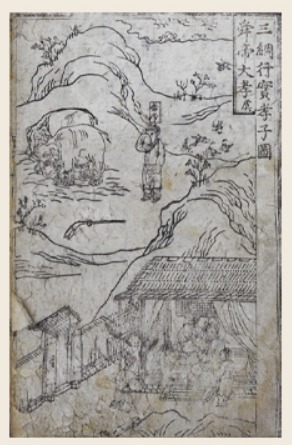 三綱行實孝子圖
舜帝大孝虞